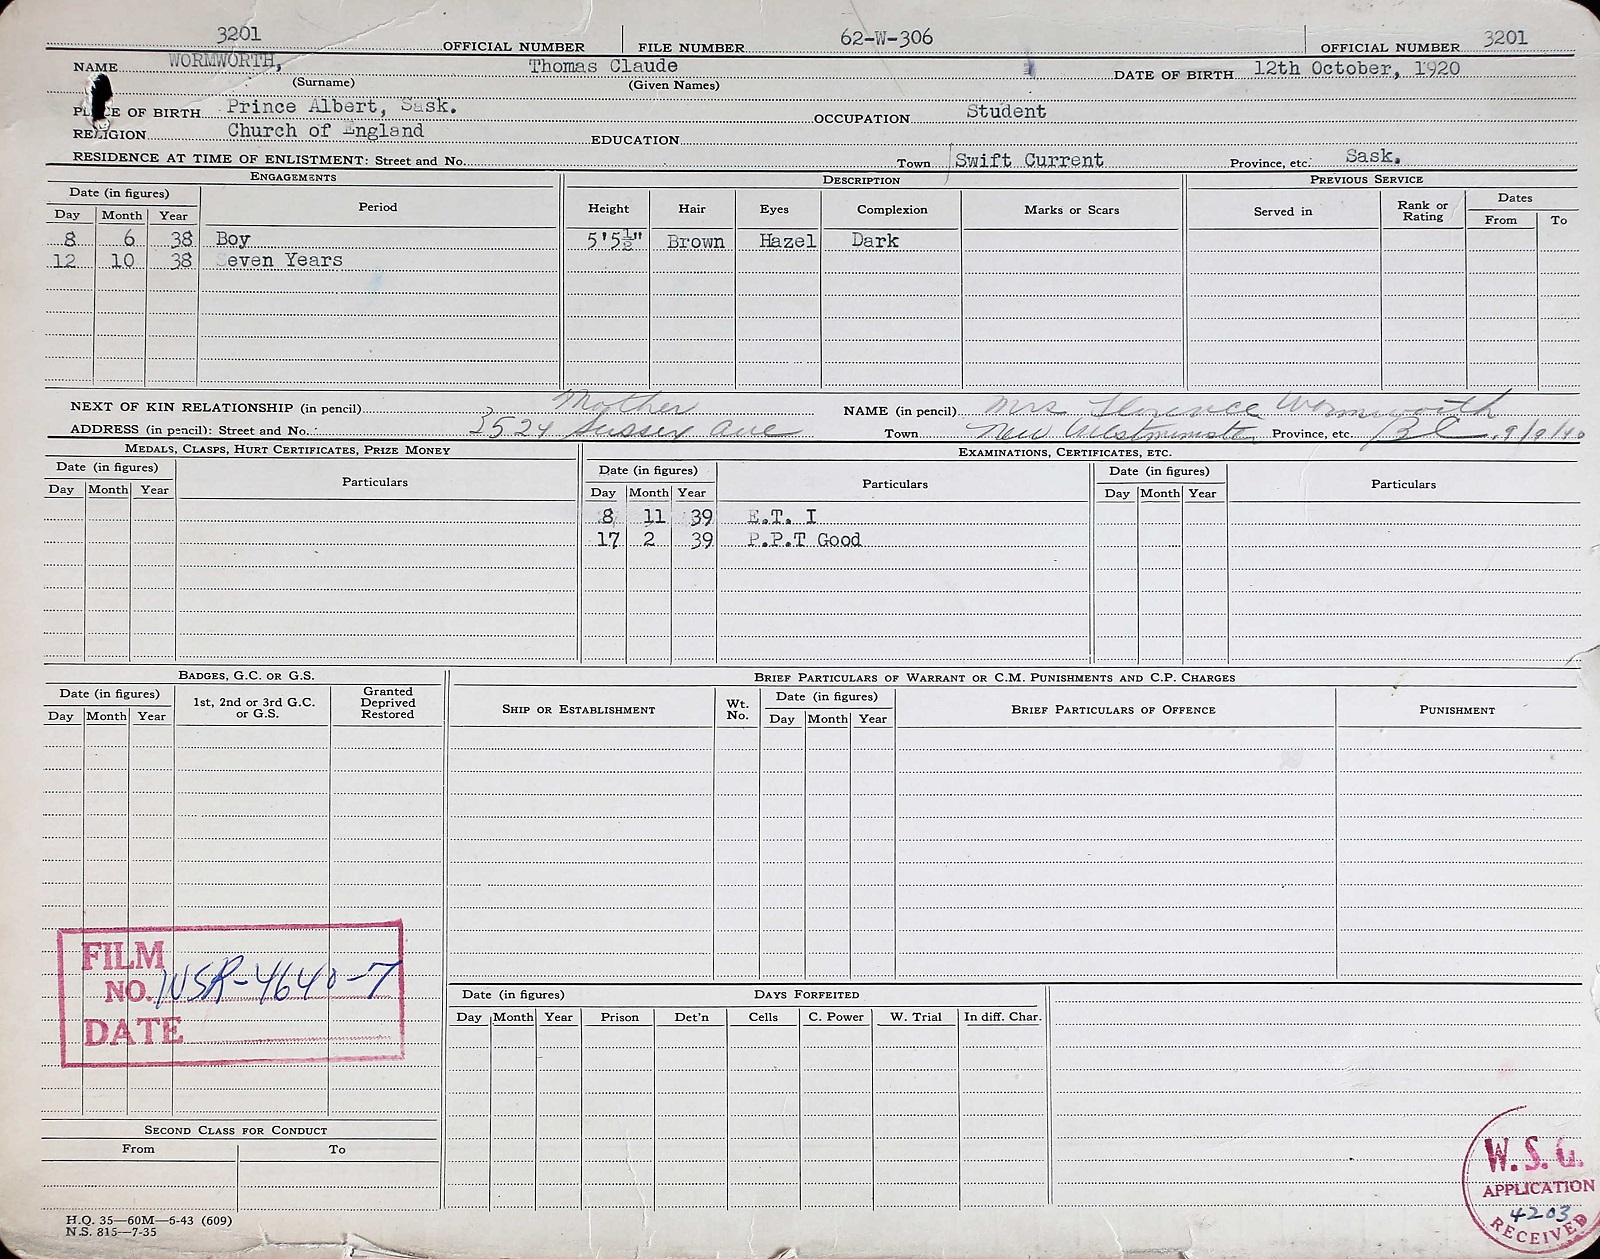 3201 OFFICIAL NUMBER FILE NUMBER 62-W-306 OFFICIAL NUMBER 3201
NAME WORMWORTH, Thomas Claude DATE OF BIRTH 12th October, 1920
(Surname) (Given Names)
PLACE OF BIRTH Prince Albert, Sask. OCCUPATION Student
RELIGION Church of England EDUCATION
RESIDENCE AT TIME OF ENLISTMENT: Street and No. Town Swift Current Province, etc. Sask.
ENGAGEMENTS DESCRIPTION PREVIOUS SERVICE
Date (in figures) Period Height Hair Eyes Complexion Marks or Scars Served in Rank or Rating Dates
Day Month Year From To
8 6 38 Boy 5'5½" Brown Hazel Dark
12 10 38 Seven Years
NEXT OF KIN RELATIONSHIP (in pencil) Mother NAME (in pencil) Mrs Florence Wormworth
ADDRESS (in pencil): Street and No. 3524 Sussex Ave Town New Westminster Province, etc. BC 9/9/40
MEDALS, CLASPS, HURT CERTIFICATES, PRIZE MONEY EXAMINATIONS, CERTIFICATES, ETC.
Date (in figures) Particulars Date (in figures) Particulars Date (in figures) Particulars
Day Month Year Day Month Year Day Month Year
8 11 39 E.T. I
17 2 39 P.P.T Good
BADGES, G.C. OR G.S. BRIEF PARTICULARS OF WARRANT OR C.M. PUNISHMENTS AND C.P. CHARGES
Date (in figures) 1st, 2nd or 3rd G.C. or G.S. Granted Deprived Restored SHIP OR ESTABLISHMENT Wt. No. Date (in figures) BRIEF PARTICULARS OF OFFENCE PUNISHMENT
Day Month Year Day Month Year
FILM
NO. WSR-4640-7
DATE
Date (in figures) DAYS FORFEITED
Day Month Year Prison Det'n Cells C. Power W. Trial In diff. Char.
SECOND CLASS FOR CONDUCT
From To
W. S. G.
APPLICATION
4203
RECEIVED
H.Q. 35—60M—6-43 (609)
N.S. 815—7-35